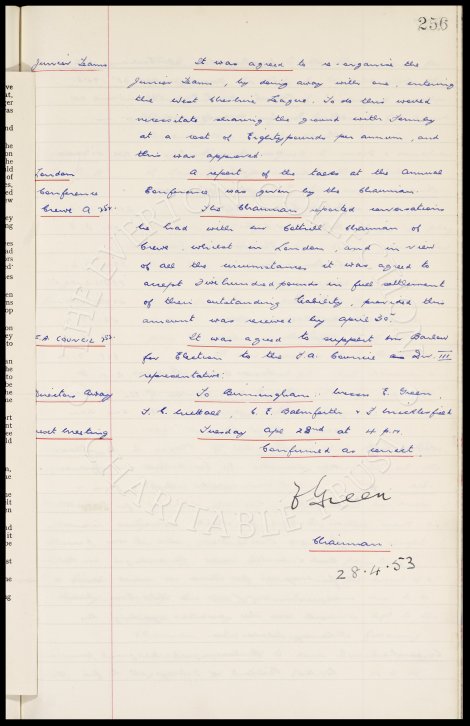 256
Junior Teams It was agreed to re-organise the
Junior Teams, by doing away with one, entering
the West Cheshire League. To do this would
necessitate sharing the ground with Formby
at a cost of Eighty pounds per annum, and
this was approved.
London A report of the talks at the Annual
Conference Conference was given by the Chairman.
Crewe A The Chairman reported conversations
he had with Mr Cottrell Chairman of
Crewe, whilst in London, and in view
of all the circumstances it was agreed to
accept Five hundred pounds in full settlement
of their outstanding liability, provided this
amount was received by April 30
F.A. COUNCIL It was agreed to support Mr Barlow
for Election to the F.A. Council as Div. III
representative.
Directors Away To Birmingham: Messrs E. Green,
C. E. Balmforth & T.
next Meeting Tuesday Apl 28nd at 4 p.m.
Confirmed as correct.
E Green
Chairman.
28.4.53
THE EVERTON
CHARITABLE TRUST